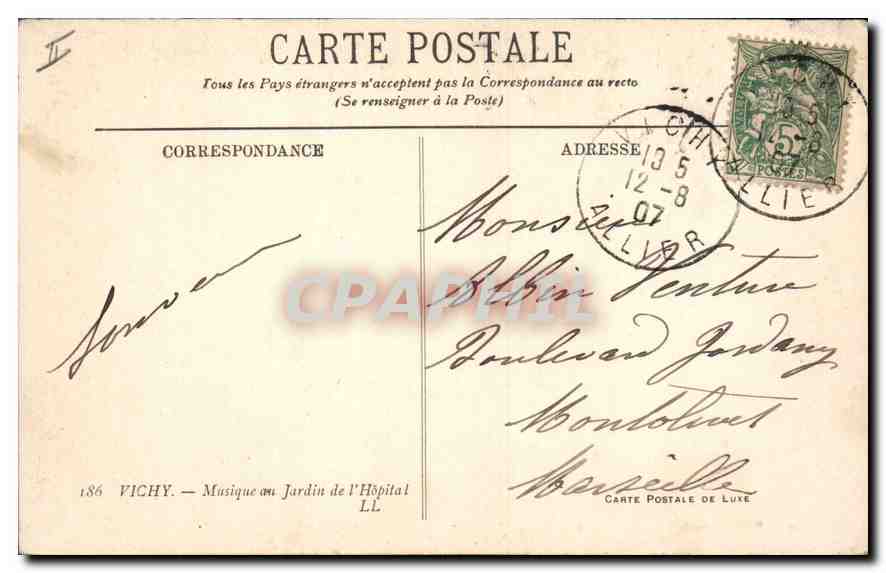 II
CARTE POSTALE
Tous les Pays étrangers n'acceptent pas la Correspondance au recto
(Se renseigner à la Poste)
CORRESPONDANCE
ADRESSE
VICHY
10 5
12 - 8
07
ALLIER
5
POSTES
ALLIER
Monsieur
Albin Venture
Boulevard Jordany
Montolivet
Marseille
CPAPHIL
186 VICHY. — Musique au Jardin de l'Hôpital
LL
CARTE POSTALE DE LUXE